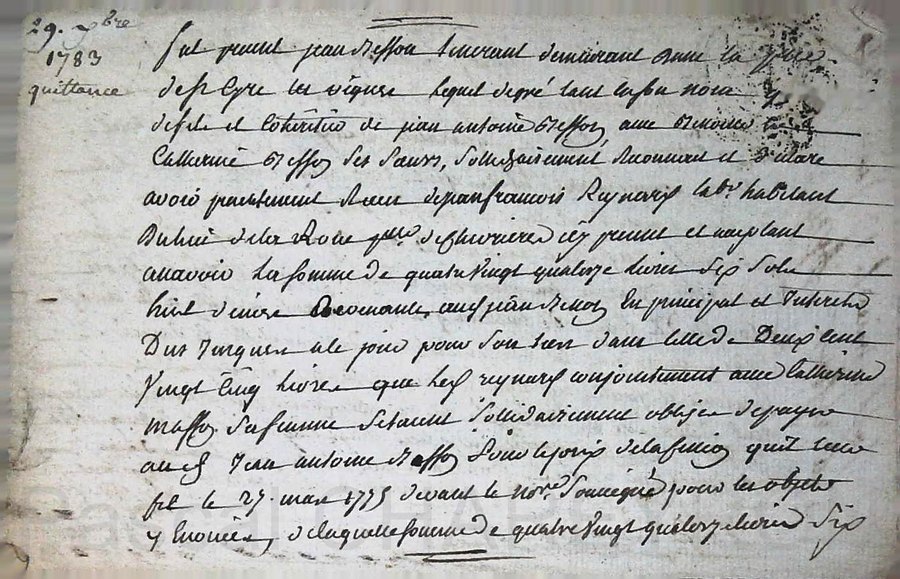 29. xbre
1783
quittance
fut present jean Besson tisserant demeurant dans la ville
de st lequel de gré tant en son nom
de fils et cohéritier de jean antoine Besson avec Benoite et
Catherine Besson ses sœurs, sollidairement, reconnait et déclare
avoir presentement recu de jean francois Reynard labr habitant
du lieu de la Roue psse de icy present et acceptant
a savoir la somme de quatre vingt quatorze livres six sols
huit deniers aud jean Besson en principal et interets
Dus jusques a ce jour pour son tiers dans celle de Deux cent
Vingt cinq livres que led reynard conjointement avec Catherine
masson sa femme setaient sollidairement obliges de payer
aud jean antoine Besson pour le prix de la qu'il leur
fit le 27. mars 1775 devant le nore soussigné pour les objets
y enoncés, de laquelle somme de quatre vingt quatorze livres six